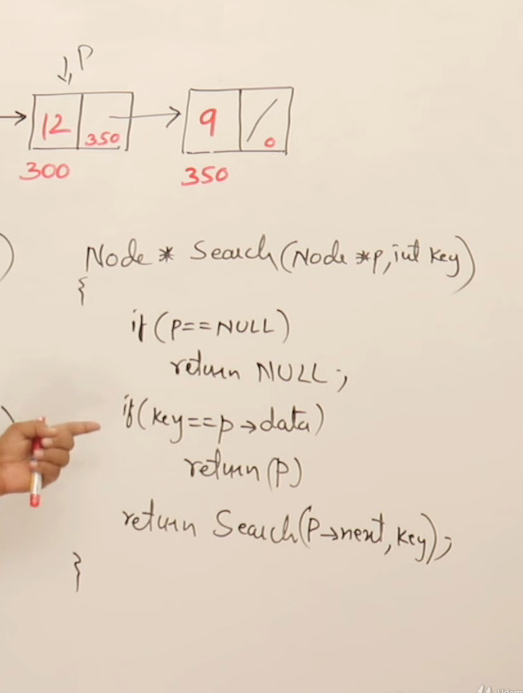 P
12 350 9 /.
300 350
Node * Search(Node *p, int key)
{
if(P==NULL)
return NULL;
if(key==p→data)
return(P)
return Search(P→next, key);
}